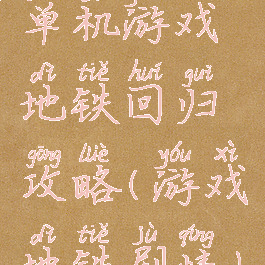 单机游戏
dì tiě huí guī
地铁回归
gōng lüè yóu xì
攻略(游戏
dì tiě jù qíng
地铁剧情)